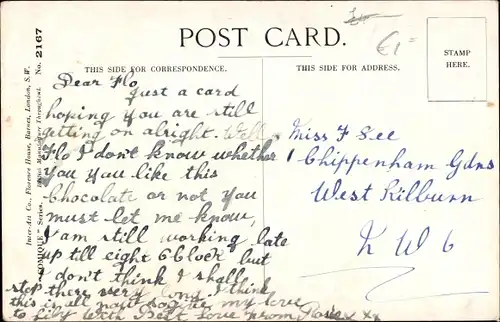 POST CARD.
THIS SIDE FOR CORRESPONDENCE.
THIS SIDE FOR ADDRESS.
STAMP
HERE.
£1=
Inter-Art Co., Florence House, Barnes, London, S.W.
"COMIQUE" Series. British Manufacture Throughout. No. 2167
Dear Flo
Just a card
hoping you are still
getting on alright. Well
Flo I don't know whether
you you like this
Chocolate or not you
must let me know,
I am still working late
up till eight o Clock but
I don't think I shall
stop there very long I think
this is all now so give my love
to Lily With Best love from Rosie x x x
Miss F See
1 Chippenham Gdns
West Kilburn
N W 6